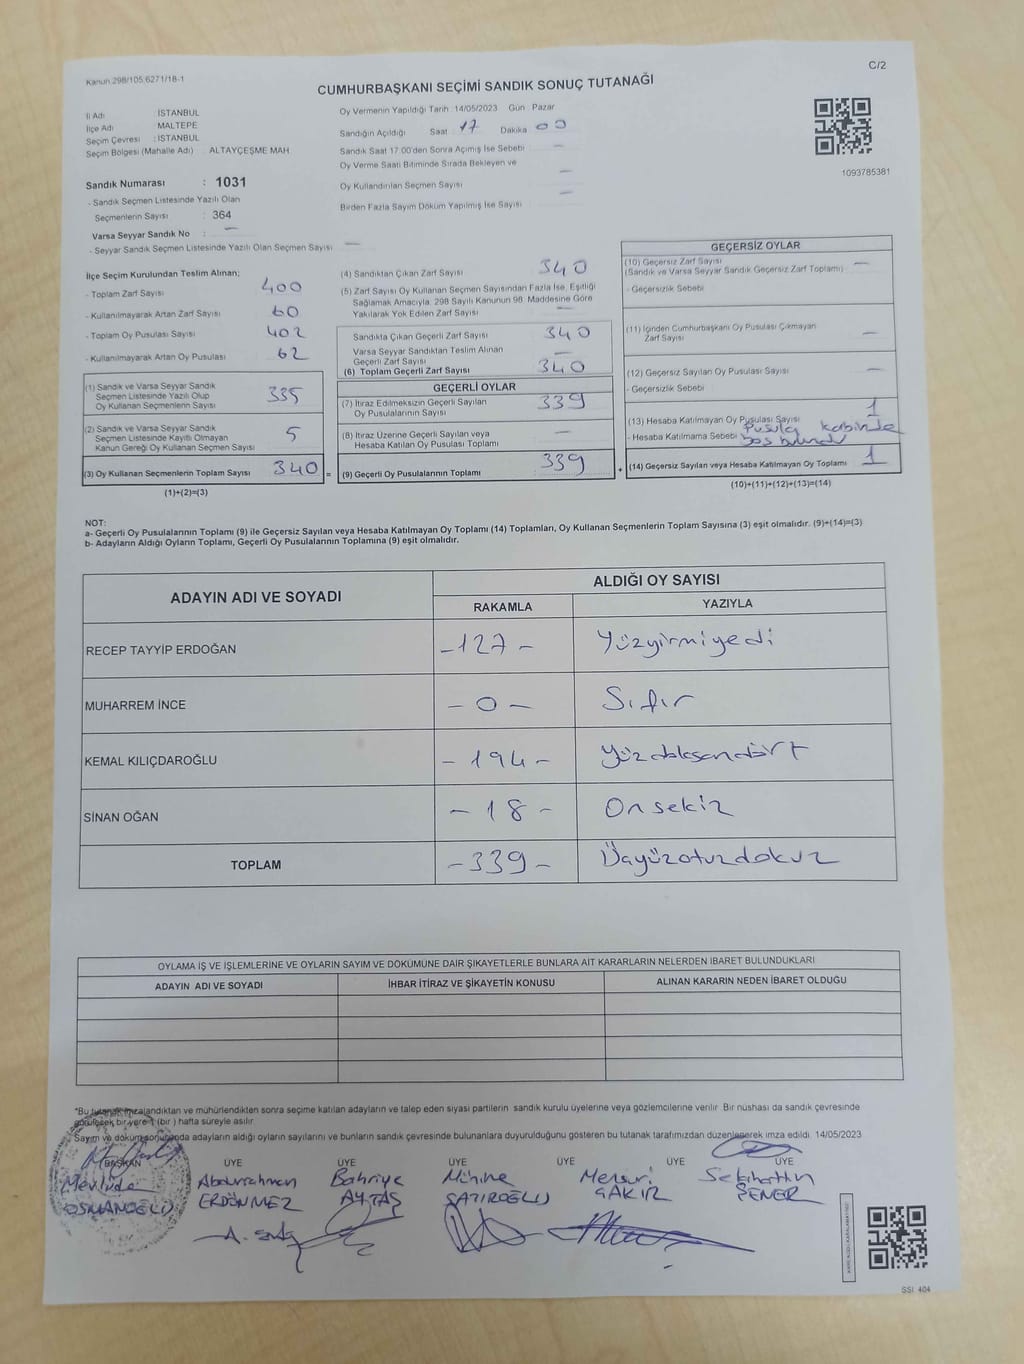 Kanun 298/105,6271/18-1
C/2
CUMHURBAŞKANI SEÇİMİ SANDIK SONUÇ TUTANAĞI
İl Adı : İSTANBUL
İlçe Adı : MALTEPE
Seçim Çevresi : İSTANBUL
Seçim Bölgesi (Mahalle Adı) : ALTAYÇEŞME MAH.
Sandık Numarası : 1031
- Sandık Seçmen Listesinde Yazılı Olan
Seçmenlerin Sayısı : 364
Varsa Seyyar Sandık No : —
- Seyyar Sandık Seçmen Listesinde Yazılı Olan Seçmen Sayısı : —
Oy Vermenin Yapıldığı Tarih : 14/05/2023 Gün : Pazar
Sandığın Açıldığı Saat : 17 Dakika : 00
Sandık Saat 17.00'den Sonra Açımış İse Sebebi : —
Oy Verme Saati Bitiminde Sırada Bekleyen ve
Oy Kullandırılan Seçmen Sayısı : —
Birden Fazla Sayım Döküm Yapılmış İse Sayısı : —
1093785381
İlçe Seçim Kurulundan Teslim Alınan;
- Toplam Zarf Sayısı 400
- Kullanılmayarak Artan Zarf Sayısı 60
- Toplam Oy Pusulası Sayısı 402
- Kullanılmayarak Artan Oy Pusulası 62
(1) Sandık ve Varsa Seyyar Sandık
Seçmen Listesinde Yazılı Olup
Oy Kullanan Seçmenlerin Sayısı 335
(2) Sandık ve Varsa Seyyar Sandık
Seçmen Listesinde Kayıtlı Olmayan
Kanun Gereği Oy Kullanan Seçmen Sayısı 5
(3) Oy Kullanan Seçmenlerin Toplam Sayısı 340
(1)+(2)=(3)
(4) Sandıktan Çıkan Zarf Sayısı 340
(5) Zarf Sayısı Oy Kullanan Seçmen Sayısından Fazla İse, Eşitliği
Sağlamak Amacıyla, 298 Sayılı Kanunun 98. Maddesine Göre
Yakılarak Yok Edilen Zarf Sayısı —
Sandıkta Çıkan Geçerli Zarf Sayısı 340
Varsa Seyyar Sandıktan Teslim Alınan
Geçerli Zarf Sayısı —
(6) Toplam Geçerli Zarf Sayısı 340
GEÇERLİ OYLAR
(7) İtiraz Edilmeksizin Geçerli Sayılan
Oy Pusulalarının Sayısı 339
(8) İtiraz Üzerine Geçerli Sayılan veya
Hesaba Katılan Oy Pusulası Sayısı —
= (9) Geçerli Oy Pusulalarının Toplamı 339
GEÇERSİZ OYLAR
(10) Geçersiz Zarf Sayısı
(Sandık ve Varsa Seyyar Sandık Geçersiz Zarf Toplamı) —
- Geçersizlik Sebebi
(11) İçinden Cumhurbaşkanı Oy Pusulası Çıkmayan
Zarf Sayısı —
(12) Geçersiz Sayılan Oy Pusulası Sayısı —
- Geçersizlik Sebebi
(13) Hesaba Katılmayan Oy Pusulası Sayısı 1
- Hesaba Katılmama Sebebi Pusula kabinde
boş bulundu
+ (14) Geçersiz Sayılan veya Hesaba Katılmayan Oy Toplamı 1
(10)+(11)+(12)+(13)=(14)
NOT:
a- Geçerli Oy Pusulalarının Toplamı (9) ile Geçersiz Sayılan veya Hesaba Katılmayan Oy Toplamı (14) Toplamları, Oy Kullanan Seçmenlerin Toplam Sayısına (3) eşit olmalıdır. (9)+(14)=(3)
b- Adayların Aldığı Oyların Toplamı, Geçerli Oy Pusulalarının Toplamına (9) eşit olmalıdır.
ADAYIN ADI VE SOYADI ALDIĞI OY SAYISI
RAKAMLA YAZIYLA
RECEP TAYYİP ERDOĞAN -127- Yüzyirmiyedi
MUHARREM İNCE -0- Sıfır
KEMAL KILIÇDAROĞLU -194-
SİNAN OĞAN -18- Onsekiz
TOPLAM -339- Üçyüzotuzdokuz
OYLAMA İŞ VE İŞLEMLERİNE VE OYLARIN SAYIM VE DÖKÜMÜNE DAİR ŞİKAYETLERLE BUNLARA AİT KARARLARIN NELERDEN İBARET BULUNDUKLARI
ADAYIN ADI VE SOYADI İHBAR İTİRAZ VE ŞİKAYETİN KONUSU ALINAN KARARIN NEDEN İBARET OLDUĞU
*Bu tutanak imzalandıktan ve mühürlendikten sonra seçime katılan adayların ve talep eden siyasi partilerin sandık kurulu üyelerine veya gözlemcilerine verilir. Bir nüshası da sandık çevresinde
görülecek bir yere 1 (bir ) hafta süreyle asılır.
Sayım ve döküm sonunda adayların aldığı oyların sayılarını ve bunların sandık çevresinde bulunanlara duyurulduğunu gösteren bu tutanak tarafımızdan düzenlenerek imza edildi. 14/05/2023
BAŞKAN ÜYE ÜYE ÜYE ÜYE ÜYE ÜYE
Mevlüde Abdurrahman Bahriye Mühine Mensuri Selahattin
OSMANOĞLU ERDÖNMEZ AYTAŞ SATIROĞLU ÇAKIR ŞENER
A.
SSI 404